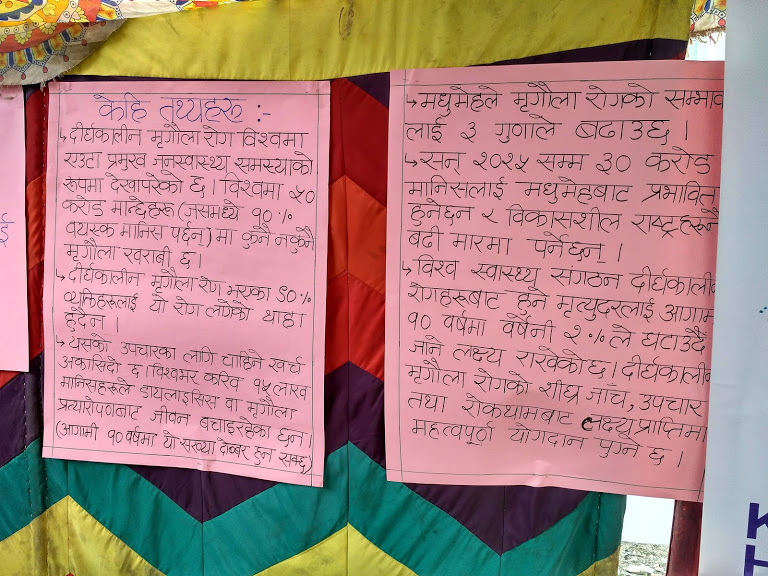 केहि तथ्यहरू :-
↳ दीर्घकालीन मृगौला रोग विश्वमा
एउटा प्रमुख जनस्वास्थ्य समस्याको
रूपमा देखापरेको छ। विश्वमा ५०
करोड मान्छेहरू (जसमध्ये १० %
वयस्क मानिस पर्छन्) मा कुनै नकुनै
मृगौला खराबी छ।
↳ दीर्घकालीन मृगौला रोग भएका ९०%
व्यक्तिहरूलाई यो रोग लागेको थाहा
हुँदैन ।
↳ यसको उपचारका लागि चाहिने खर्च
अकासिदो छ। विश्वभर करिव १५ लाख
मानिसहरूले डायलाइसिस वा मृगौला
प्रत्यारोपणबाट जीवन बचाइरहेका छन्।
(आगामी १० वर्षमा यो संख्या दोब्बर हुन सक्छ)
↳ मधुमेहले मृगौला रोगको सम्भाव
लाई ३ गुणाले बढाउछ ।
↳ सन् २०२५ सम्म ३० करोड
मानिसलाई मधुमेहबाट प्रभावित
हुनेछन र विकासशील राष्ट्रहरूनै
बढी मारमा पर्नेछन् ।
↳ विश्व स्वास्थ्य संगठन दीर्घकालीन
रोगहरूबाट हुने मृत्युदरलाई आगाम
१० वर्षमा वर्षेनी २ %ले घटाउदै
जाने लक्ष्य राखेकोछ। दीर्घकालीन
मृगौला रोगको शीघ्र जाँच, उपचार
तथा रोकथामबाट लक्ष्य प्राप्तिमा
महत्वपूर्ण योगदान पुग्ने छ ।
ई
K
H